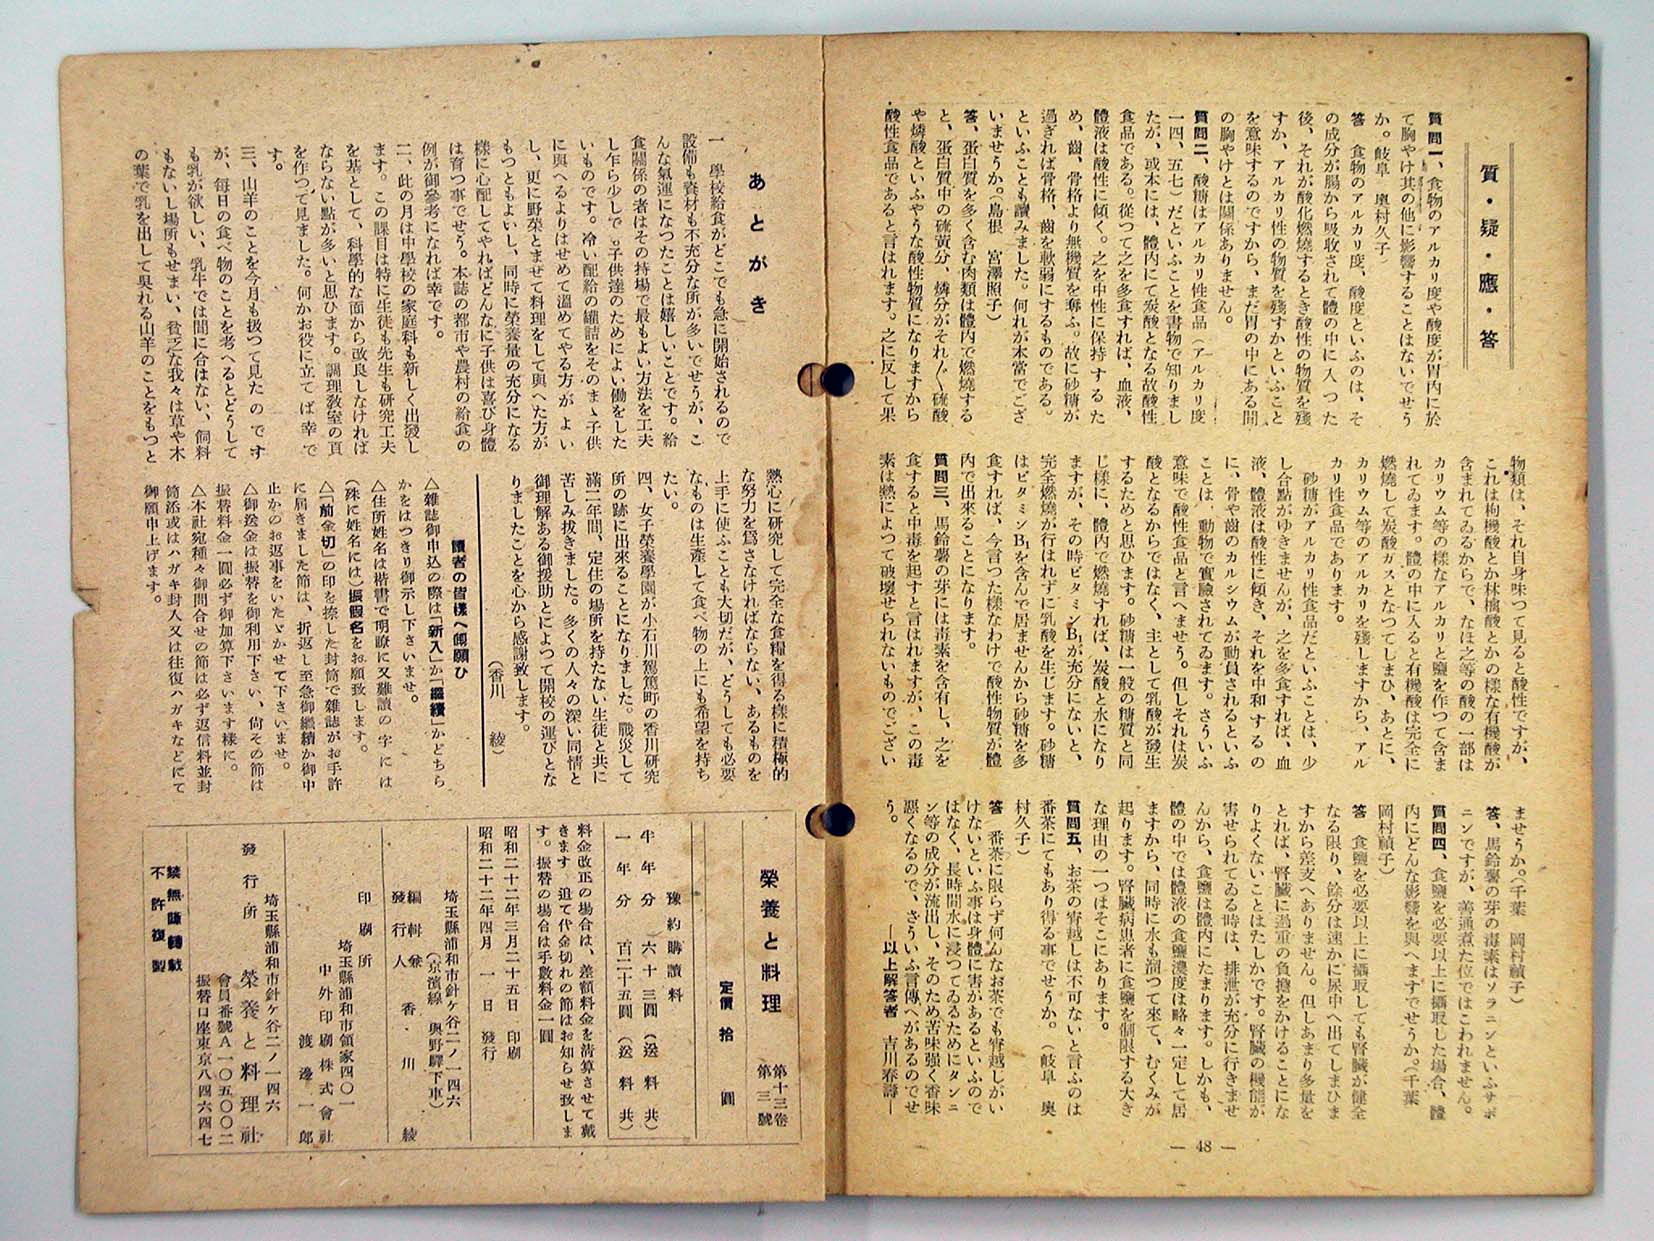 質・疑・應・答
質問一、食物のアルカリ度や酸度が胃内に於
て胸やけ其の他に影響することはないでせう
か。（岐阜　奥村久子）
答　食物のアルカリ度、酸度といふのは、そ
の成分が腸から吸收されて體の中に入つた
後、それが酸化燃燒するとき酸性の物質を殘
すか、アルカリ性の物質を殘すかといふこと
を意味するのですから、まだ胃の中にある間
の胸やけとは關係ありません。
質問二、酸糖はアルカリ性食品（アルカリ度
一四、五七）だといふことを書物で知りまし
たが、或本には、體內にて炭酸となる故酸性
食品である。從つて之を多食すれば、血液、
體液は酸性に傾く。之を中性に保持するた
め、齒、骨格より無機質を奪ふ。故に砂糖が
過ぎれば骨格、齒を軟弱にするものである。
といふことも讀みました。何れが本當でござ
いませうか。（島根　宮澤照子）
答、蛋白質を多く含む肉類は體內で燃燒する
と、蛋白質中の硫黃分、燐分がそれ〴〵硫酸
や燐酸といふやうな酸性物質になりますから
酸性食品であると言はれます。之に反して果
物類は、それ自身味つて見ると酸性ですが、
これは枸櫞酸とか林檎酸とかの樣な有機酸が
含まれてゐるからで、なほ之等の酸の一部は
カリウム等の樣なアルカリと鹽を作つて含ま
れてゐます。體の中に入ると有機酸は完全に
燃燒して炭酸ガスとなつてしまひ、あとに、
カリウム等のアルカリを殘しますから、アル
カリ性食品であります。
砂糖がアルカリ性食品だといふことは、少
し合點がゆきませんが、之を多食すれば、血
液、體液は酸性に傾き、それを中和するの
に、骨や齒のカルシウムが動員されるといふ
ことは、動物で實驗されてゐます。さういふ
意味で酸性食品と言へませう。但しそれは炭
酸となるからではなく、主として乳酸が發生
するためと思ひます。砂糖は一般の糖質と同
じ樣に、體內で燃燒すれば、炭酸と水になり
ますが、その時ビタミンB₁が充分にないと、
完全燃燒が行はれずに乳酸を生じます。砂糖
はビタミンB₁を含んで居ませんから砂糖を多
食すれば、今言つた樣なわけで酸性物質が體
內で出來ることになります。
質問三、馬鈴薯の芽には毒素を含有し、之を
食すると中毒を起すと言はれますが、この毒
素は熱によつて破壞せられないものでござい
ませうか。（千葉　岡村禎子）
答、馬鈴薯の芽の毒素はソラニンといふサポ
ニンですが、善通煮た位ではこわれません。
質問四、食鹽を必要以上に攝取した場合、體
內にどんな影響を與へますでせうか。（千葉
岡村禎子）
答　食鹽を必要以上に攝取しても腎臟が健全
なる限り、餘分は速かに尿中へ出てしまひま
すから差支へありません。但しあまり多量を
とれば、腎臟に過重の負擔をかけることにな
りよくないことはたしかです。腎臟の機能が
害せられてゐる時は、排泄が充分に行きませ
んから、食鹽は體內にたまります。しかも、
體の中では體液の食鹽濃度は略々一定して居
ますから、同時に水も溜つて來て、むくみが
起ります。腎臟病患者に食鹽を制限する大き
な理由の一つはそこにあります。
質問五、お茶の宵越しは不可ないと言ふのは
番茶にてもあり得る事でせうか。（岐阜　奥
村久子）
答　番茶に限らず何んなお茶でも宵越しがい
けないといふ事は身體に害があるといふので
はなく、長時間水に浸つてゐるためにタンニ
ン等の成分が流出し、そのため苦味强く香味
惡くなるので、さういふ言傳へがあるのでせ
う。　―以上解答者　吉川春壽―
― 48 ―
あとがき
一　學校給食がどこでも急に開始されるので
設備も資材も不充分な所が多いでせうが、こ
んな氣運になつたことは嬉しいことです。給
食關係の者はその持場で最もよい方法を工夫
し乍ら少しでも子供達のためによい働をした
いものです。冷い配給の罐詰をそのまゝ子供
に與へるよりはせめて溫めてやる方がよい
し、更に野菜とまぜて料理をして與へた方が
もつともよいし、同時に榮養量の充分になる
樣に心配してやればどんなに子供は喜び身體
は育つ事でせう。本誌の都市や農村の給食の
例が御參考になれば幸です。
二、此の月は中學校の家庭科も新しく出發し
ます。この課目は特に生徒も先生も硏究工夫
を基として、科學的な面から改良しなければ
ならない點が多いと思ひます。調理敎室の頁
を作つて見ました。何かお役に立てば幸で
す。
三、山羊のことを今月も扱つて見たのです
が、每日の食べ物のことを考へるとどうして
も乳が欲しい、乳牛では間に合はない、飼料
もないし場所もせまい、貧乏な我々は草や木
の葉で乳を出して吳れる山羊のことをもつと
熱心に硏究して完全な食糧を得る樣に積極的
な努力を爲さなければならない、あるものを
上手に使ふことも大切だが、どうしても必要
なものは生產して食べ物の上にも希望を持ち
たい。
四、女子榮養學園が小石川駕篭町の香川硏究
所の跡に出來ることになりました。戰災して
滿二年間、定住の場所を持たない生徒と共に
苦しみ拔きました。多くの人々の深い同情と
御理解ある御援助とによつて開校の運びとな
りましたことを心から感謝致します。
（香川　綾）
讀者の皆樣へ御願ひ
△雜誌御申込の際は「新入」か「繼續」かどちら
かをはつきり御示し下さいませ。
△住所姓名は楷書で明瞭に又難讀の字には
（殊に姓名には）振假名をお願致します。
△「前金切」の印を捺した封筒で雜誌がお手許
に屆きました節は、折返し至急御繼續か御中
止かのお返事をいたゞかせて下さいませ。
△御送金は振替を御利用下さい、尙その節は
振替料金一圓必ず御加算下さいます樣に。
△本社宛種々御問合せの節は必ず返信料並封
筒添或はハガキ封入又は往復ハガキなどにて
御願申上げます。
榮養と料理　第十三卷　第三號
定價　拾　圓
豫約購讀料
半年分　六十三圓（送料共）
一年分　百二十五圓（送料共）
料金改正の場合は、差額料金を清算させて戴
きます　追て代金切れの節はお知らせ致しま
す。振替の場合は手數料金一圓
昭和二十二年三月二十五日　印刷
昭和二十二年四月　一日　發行
埼玉縣浦和市針ヶ谷二ノ一四六
（京濱線　與野驛下車）
編輯兼發行人　香川　綾
埼玉縣浦和市領家四〇一
印刷所　中外印刷株式會社
渡邊一郎
埼玉縣浦和市針ヶ谷二ノ一四六
發行所　榮養と料理社
會員番號A一〇五〇〇二
振替口座東京八四六四七
禁無斷轉載
不許複製